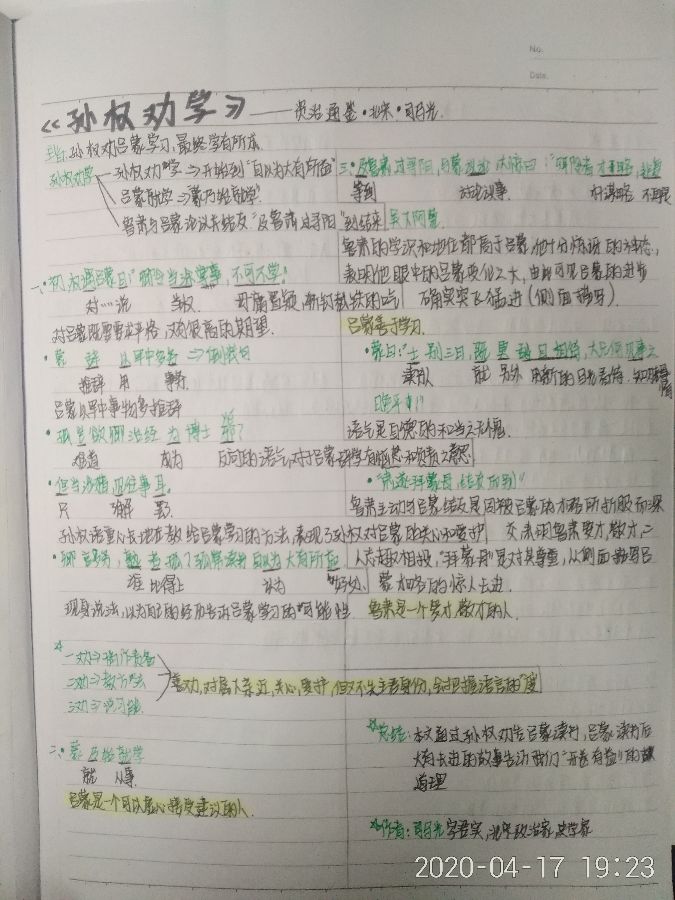 No.
Date.
《孙权劝学》——资治通鉴·北宋·司马光
主旨:孙权劝吕蒙学习,最终学有所成
孙权劝学 孙权劝学⇒开始到"自以为大有所益"
吕蒙就学⇒"蒙乃始就学"
鲁肃与吕蒙论议并结友"及鲁肃过寻阳"到结束
一、初,权谓吕蒙曰:"卿今当涂掌事,不可不学!
对……说 当权
对吕蒙既需要求严格,又有很高的期望.
·蒙辞以军中多务⇒倒装句
推辞 用 事务
吕蒙以军中事物多推辞
·孤岂欲卿治经为博士邪?
难道 成为 反问的语气,对于吕蒙
·但当涉猎,见往事耳。
只 了解 罢
孙权语重心长地在教给吕蒙学习的方法,表现了孙权对吕蒙的关心和爱护
·卿言多务,孰若孤?孤常读书,自以为大有所益
谁 比得上 认为 好处
现身说法,以为自己的经历告诉吕蒙学习的"可能性
一劝⇒
二劝⇒教方法
三劝⇒
善劝,对属下亲近,关心,爱护,但又不失主君身份,会把握语言的"度
二、蒙乃始就学
就 从事
吕蒙是一个可以虚心接受建议的人.
三、及鲁肃过寻阳,与蒙论议,大惊曰:"卿今者才略,非复
等到 讨论议事 才谋略 不再是
吴下阿蒙
鲁肃的学识和地位都高于吕蒙,他十分惊讶的神态,
表明他眼中的吕蒙变化之大,由此可见吕蒙的进步
确实突飞猛进(侧面描写).
吕蒙善于学习.
·蒙曰:"士别三日,即更刮目相待,大兄何见事之
读书人 就 另外 用新的目光看待
晚乎!"
语气是自德的和当之无愧.
·"肃遂拜蒙母,结友而别"
鲁肃主动与吕蒙结友是因被吕蒙的才略所折服而深
交,表明鲁肃爱才,敬才,二
人志趣相投,"拜蒙母"是对其尊重,从侧面描写吕
蒙才略的惊人长进.
鲁肃是一个爱才,敬才的人.
总结:本文通过孙权劝告吕蒙读书,吕蒙读书后
大有长进的故事告诉我们"开卷有益"的
道理
作者:司马光字君实,北宋政治家,史学家
2020-04-17 19:23